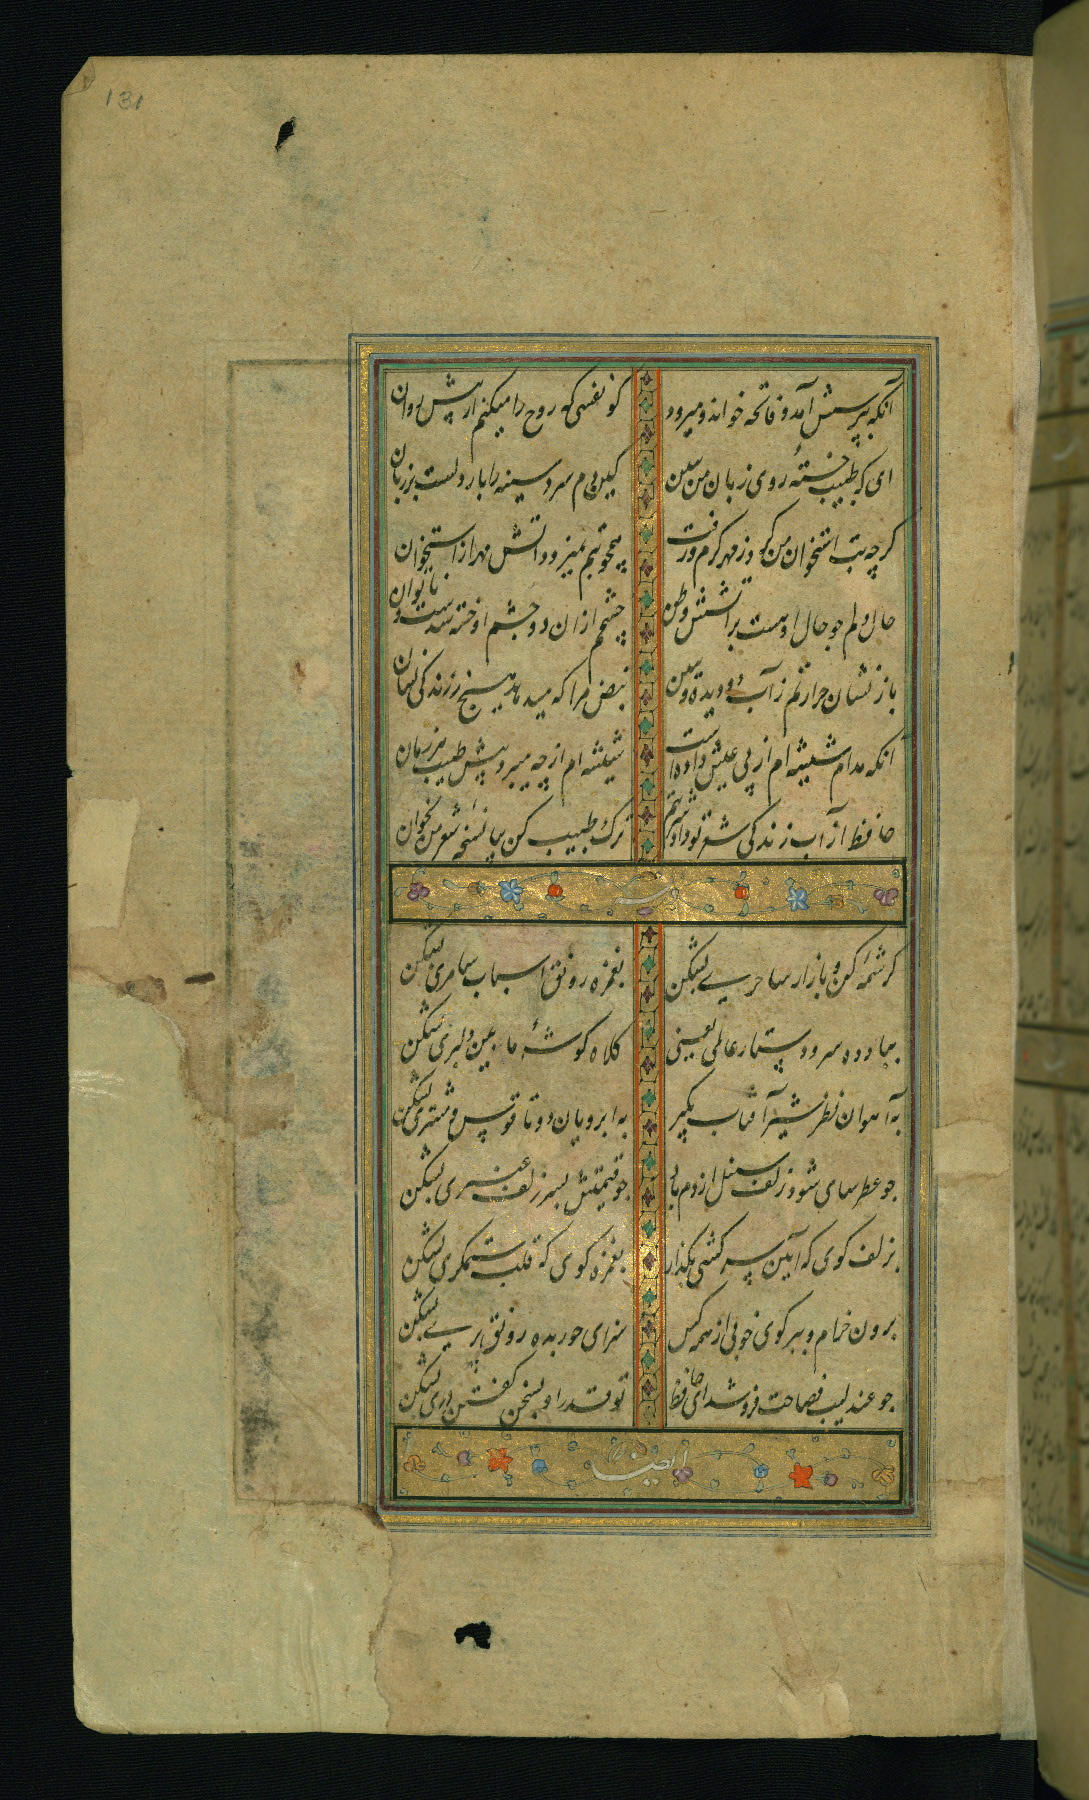 131
آنکه بپرسش آمد و فاتحه خواند و میرود
کو نفسی که روح را میکنم از پیش روان
ای که طبیب خستهٔ روی زبان من ببین
کین دم سرد سینه را بار دلست بر زبان
کرچه تب استخوان من کرد ز مهر کرم و رفت
همچو تبم نمیرود اتش مهر از استخوان
حال دلم جو خال او هست بر اتشش وطن
چشمم ازان دو چشم او خسته شدست و ناتوان
باز نشان حرارتم ز آب دو دیده و ببین
نبض مرا که میدهد هیچ ز زندکی نشان
آنکه مدام شیشه ام از پی عیش داده است
شیشه ام از چه میبرد پیش طبیب هر زمان
حافظ از آب زندکی شعر تو داد شربتم
ترک طبیب کن بیا نسخه شعر من بخوان
کرشمه کن و بازار ساحری بشکن
بغمزه رونق اسباب سامری بشکن
بباد ده سر و دستار عالمی یعنی
کلاه کوشهٔ بآیین دلبری بشکن
به آهوان نظر شیر آفتاب بکیر
به ابروان دو تا قوس مشتری بشکن
جو عطرسای شود زلف سنبل از دم باد
جو قیمتش بسر زلف عنبری بشکن
بزلف کوی که آیین سرکشی بکذار
بغمزه کوی که قلب ستمکری بشکن
برون خرام و ببر کوی خوبی از همه کس
سزای حور بده رونق پری بشکن
جو عندلیب فصاحت فروشد ای حافظ
تو قدر او بسخن کفتن دری بشکن
ایضا